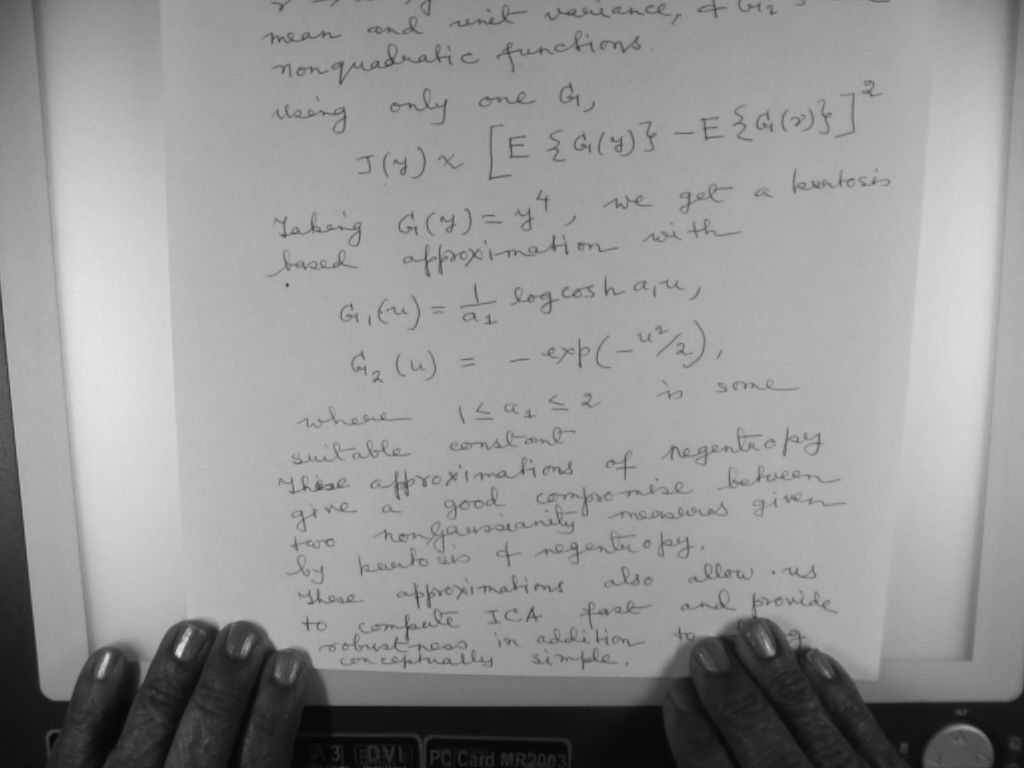 mean and unit variance, & G₂
nonquadratic functions.
Using only one G,
J(y) ∝ [E {G(y)} – E {G(ν)}]²
Taking G(y) = y⁴, we get a kurtosis
based approximation with
G₁(u) = 1/a₁ log cosh a₁u,
G₂(u) = – exp(–u²/2),
where 1 ≤ a₁ ≤ 2 is some
suitable constant
These approximations of negentropy
give a good compromise between
two nongaussianity measures given
by kurtosis & negentropy.
These approximations also allow us
to compute ICA fast and provide
robustness in addition to
conceptually simple.
A3 DVI PC Card MR2003